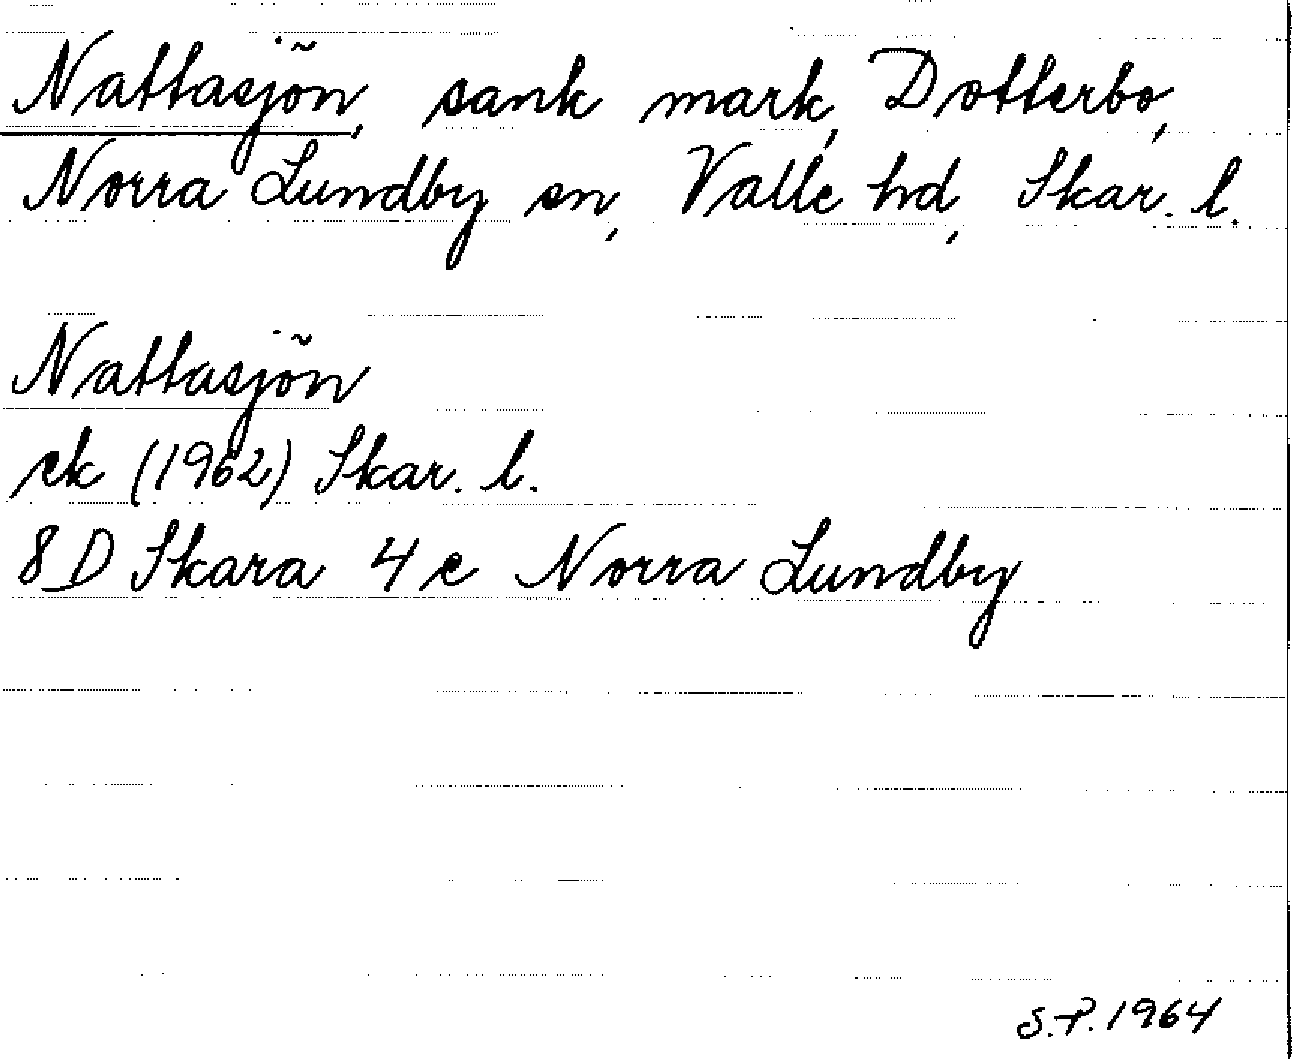 Nattasjön, sank mark, Dotterbo,
Norra Lundby sn, Valle hd, Skar. l.
Nattasjön
ek (1962) Skar. l.
8 D Skara 4 e Norra Lundby
S.P. 1964